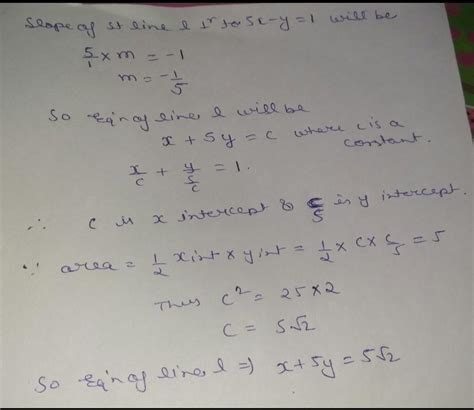 Slope of st line l ⊥r to 5x-y=1 will be
5/1 × m = -1
m = -1/5
So Eq'n of line l will be
x + 5y = c where c is a constant.
x/c + y/(5/c) = 1.
∴ c is x intercept & c/5 is y intercept.
∵ area = 1/2 x int × y int = 1/2 × c × c/5 = 5
Thus c² = 25×2
c = 5√2
So Eq'n of line l ⇒ x+5y = 5√2